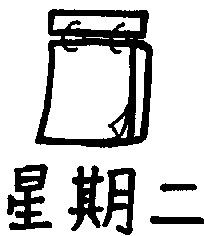 星期二